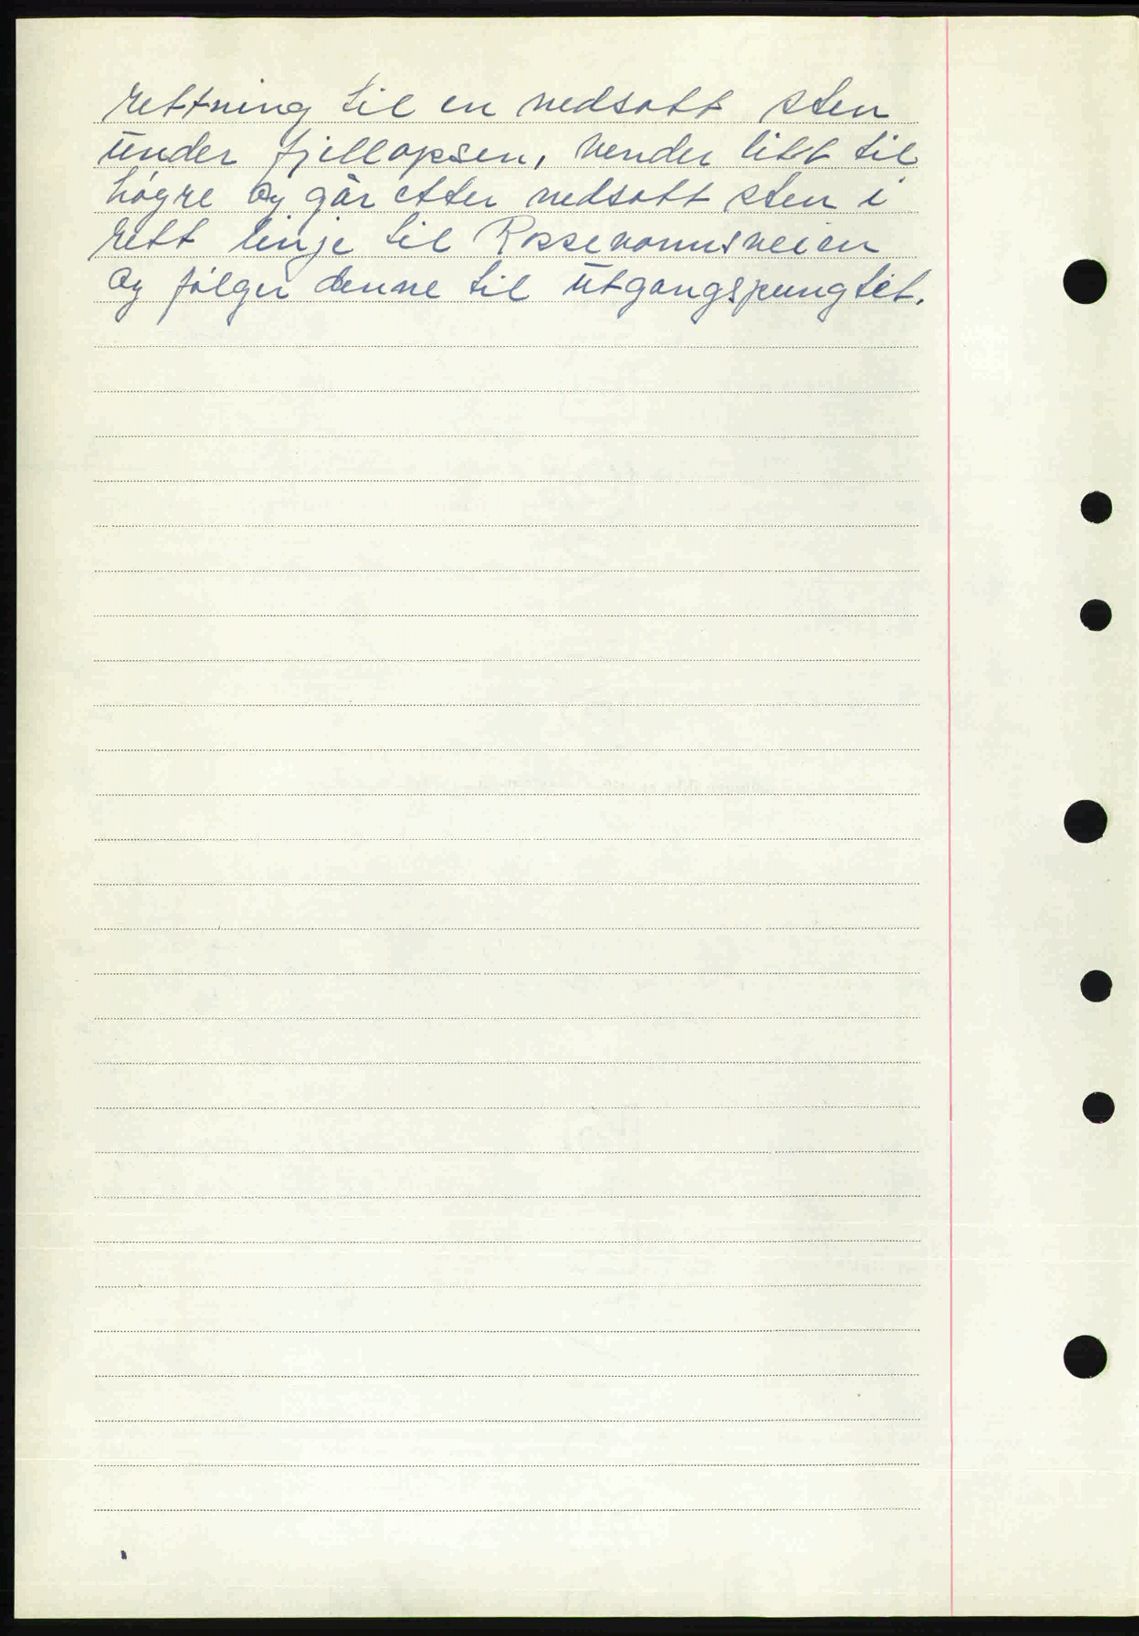 rettning til en nedsatt sten
under fjellopsen, vender litt til
högre og går etter nedsatt sten i
rett linje til Rossevannsveien
og følger denne til utgangspungtet.